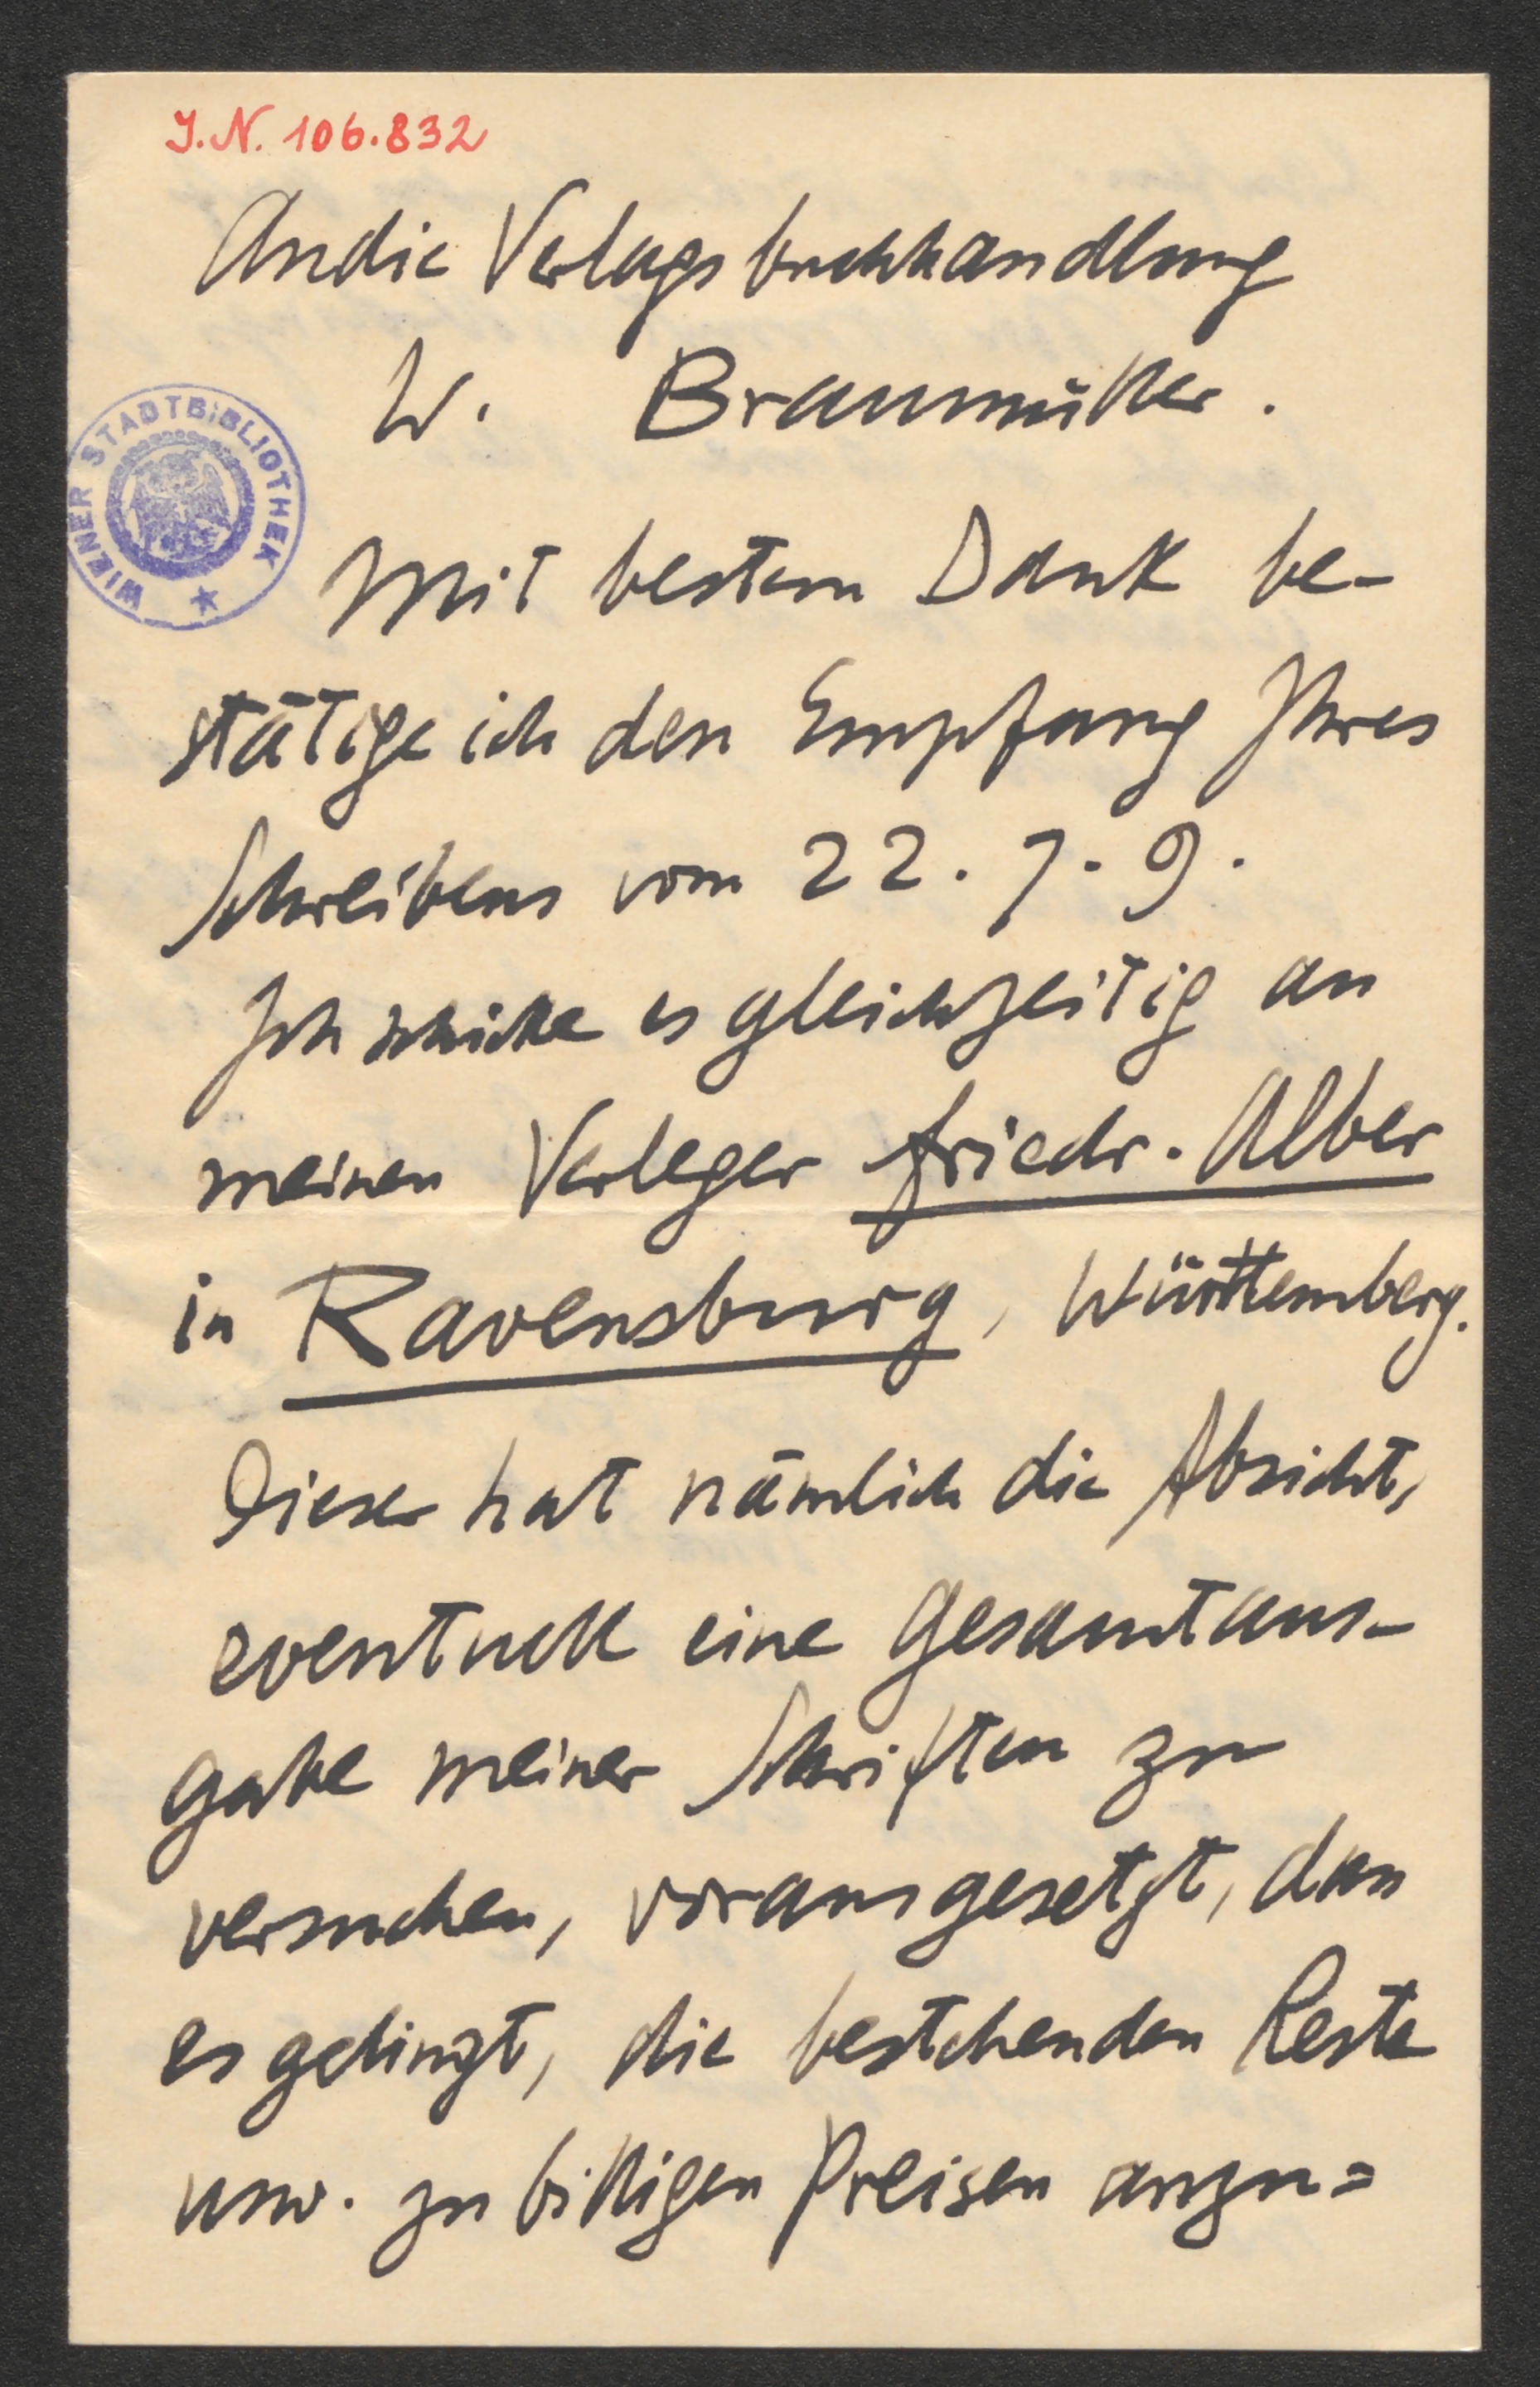 J.N. 106.832
An die Verlagsbuchhandlung
W. Braumüller.
WIENER STADTBIBLIOTHEK
Mit bestem Dank be-
stätige ich den Empfang Ihres
Schreibens vom 22. 7. 9.
Ich schicke es gleichzeitig an
meinen Verleger Friedr. Alber
in Ravensburg, Württemberg.
Dieser hat nämlich die Absicht,
eventuell eine Gesamtaus-
gabe meiner Schriften zu
versuchen, vorausgesetzt, dass
es gelingt, die bestehenden Reste
usw. zu billigen Preisen anzu=